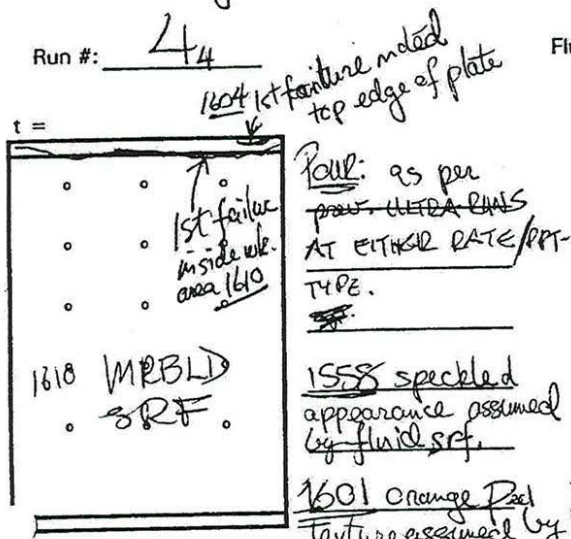 Run #: 44
Fl
1604 1st failure noted
top edge of plate
t =
1st failure
inside wk.
area 1610
1618 MRBLD
SRF
POUR: as per
prev. ULTRA RUNS
AT EITHER RATE/PPT-
TYPE.
1558 speckled
appearance assumed
by fluid srf.
1601 orange Peel
Texture assumed by